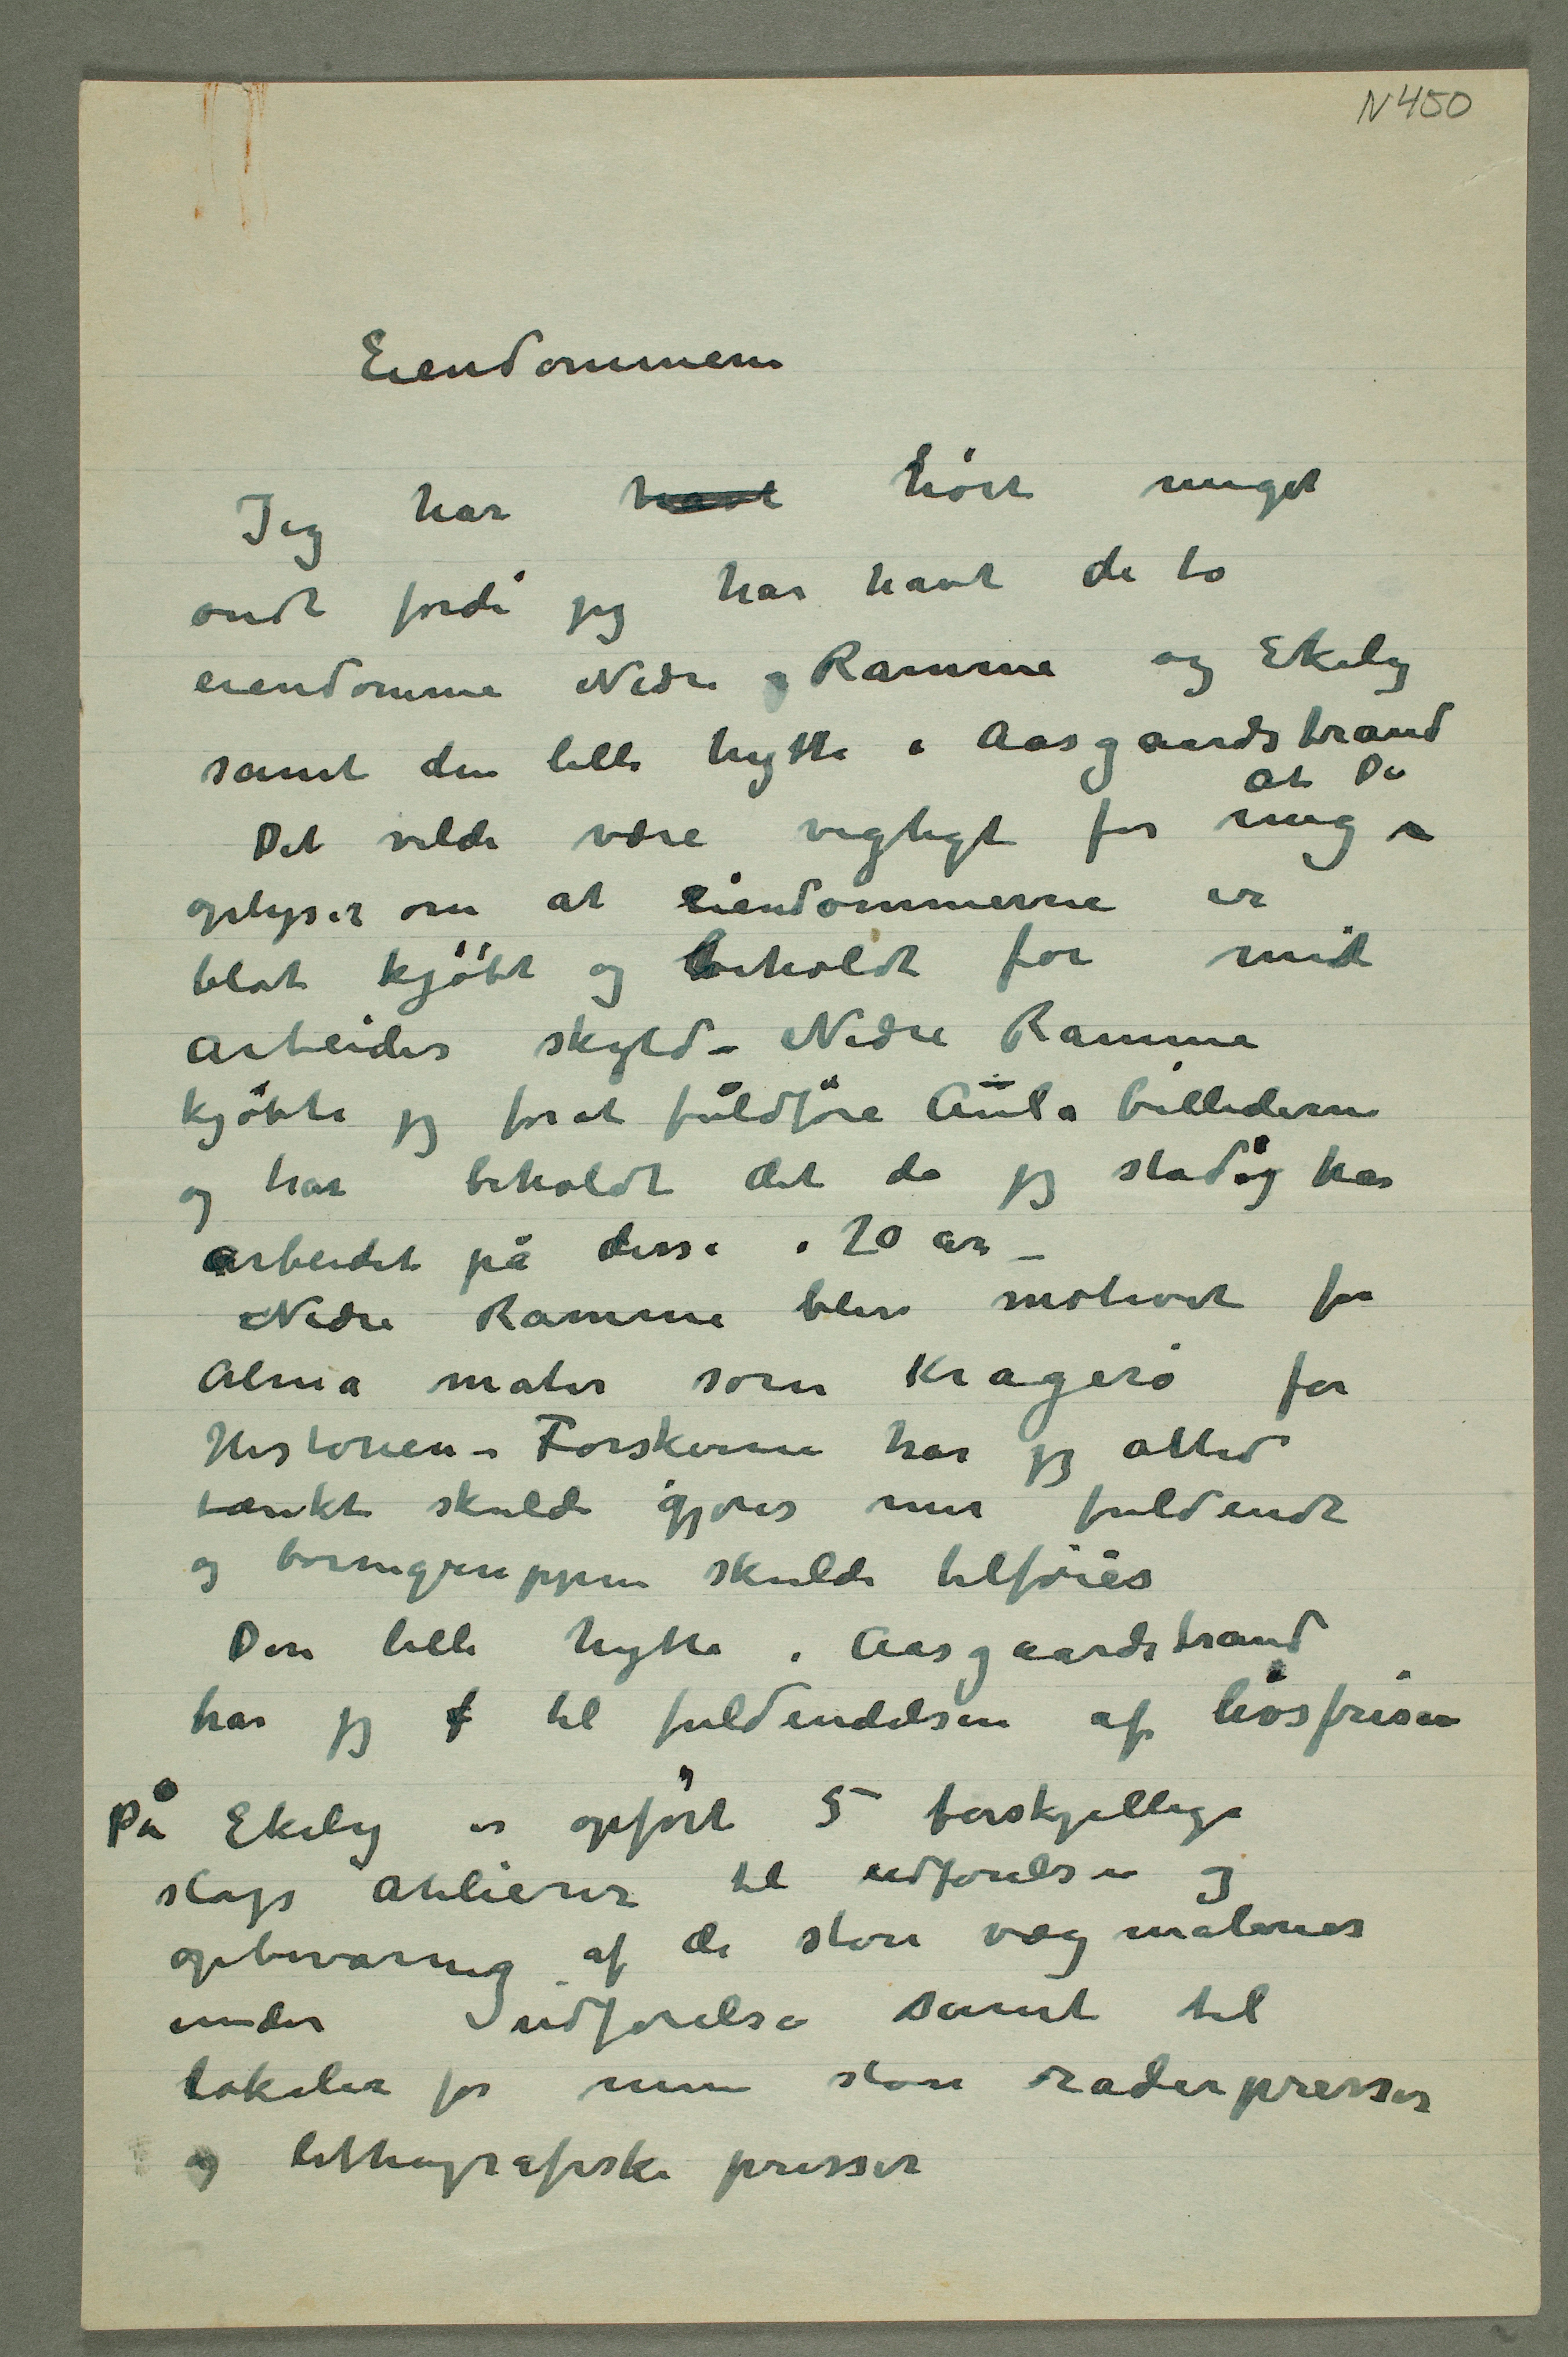 N 450
Eiendommen
Jeg har havt hört meget
ondt fordi jeg har havt de to
eiendomme Nedre Ramme og Ekely
samt den lille hytte i Aasgaardstrand
at De
Det vilde være vigtigt for mig
oplyser om at eiendommerne er
blot kjöbt og beholdt for mit
arbeides skyld – Nedre Ramme
kjöbte jeg forat fuldföre Aula billederne
og har beholdt det da jeg stadig har
arbeidet på disse i 20 år –
Nedre Ramme blev motivet for
Alma mater som Kragerö for
Historien – Forskerne har jeg altid
tænkt skulde gjøres mer fuldendt
og barnegruppen skulde tilföies
Den lille hytte i Aasgaardstrand
har jeg f til fuldendelsen af livsfrisen
På Ekely er opfört 5 forskjellige
slags atelierer til udførelsen og
opbevaring af de store vægmalerier
under udførelse samt til
lokaler for mine store raderpresser
og lithografiske presser